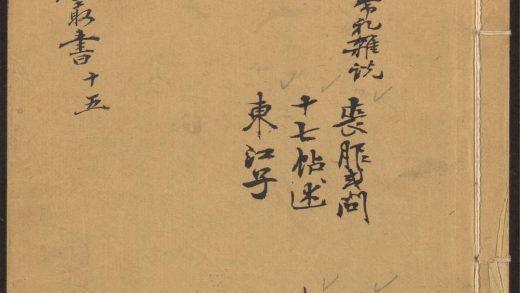 常礼雜説
喪服或問
十七帖述
東江子
叢書十五